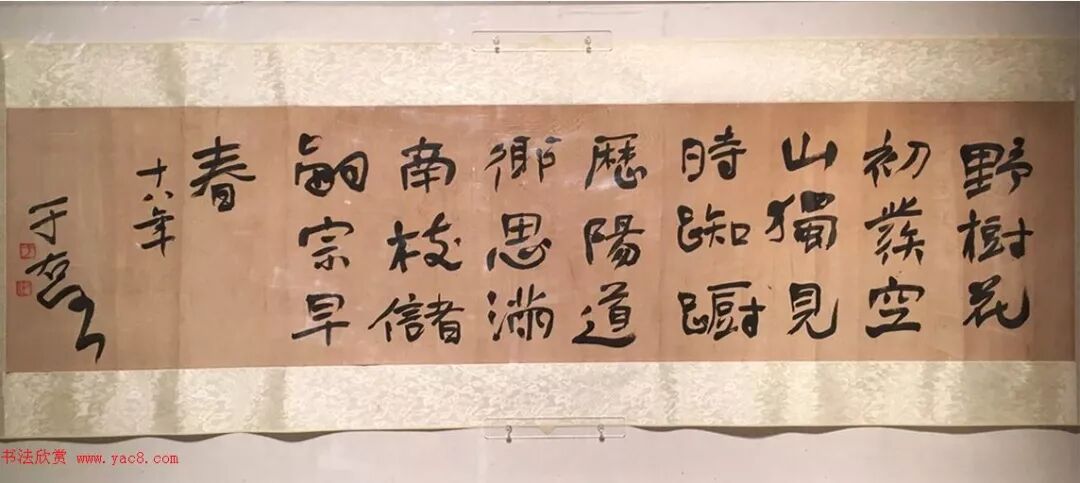 野樹花
初發空
山獨見
時踟躕
歷陽道
鄉思滿
南枝儲
嗣宗早
春
十八年
于右任
书法欣赏 www.yac8.com